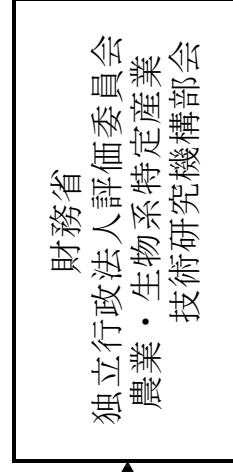 財務省
独立行政法人評価委員会
農業・生物系特定産業
技術研究機構部会